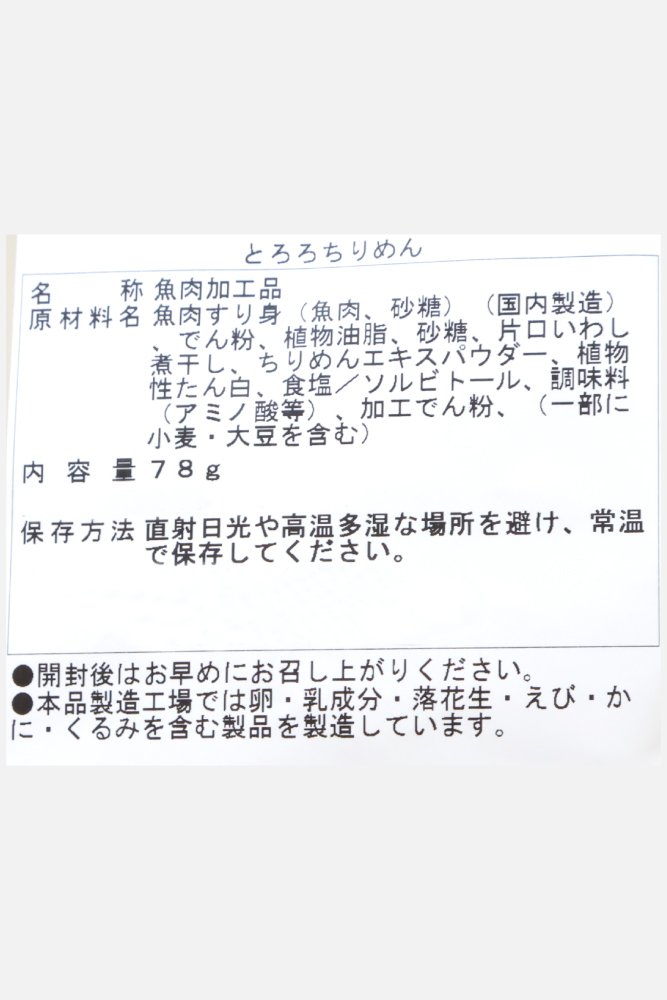 とろろちりめん
名称 魚肉加工品
原材料名 魚肉すり身（魚肉、砂糖）（国内製造）
、でん粉、植物油脂、砂糖、片口いわし
煮干し、ちりめんエキスパウダー、植物
性たん白、食塩／ソルビトール、調味料
（アミノ酸等）、加工でん粉、（一部に
小麦・大豆を含む）
内容量 ７８ｇ
保存方法 直射日光や高温多湿な場所を避け、常温
で保存してください。
●開封後はお早めにお召し上がりください。
●本品製造工場では卵・乳成分・落花生・えび・か
に・くるみを含む製品を製造しています。